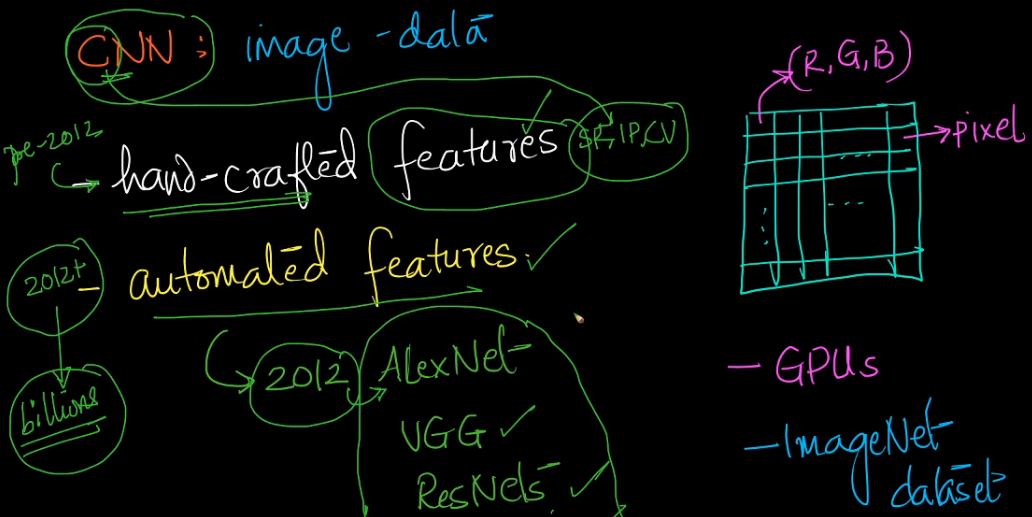 CNN : image - data
(R, G, B)
pixel
pre-2012
hand-crafted features SP, IP, CV
2012+
automated features.
billions
2012 AlexNet
VGG
ResNets
- GPUs
- ImageNet
dataset